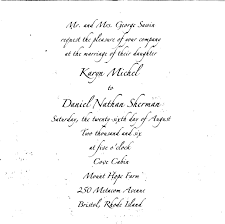 Mr. and Mrs. George Sawin
request the pleasure of your company
at the marriage of their daughter
Karyn Michel
to
Daniel Nathan Sherman
Saturday, the twenty-sixth day of August
Two thousand and six
at five o'clock
Cove Cabin
Mount Hope Farm
250 Metacom Avenue
Bristol, Rhode Island